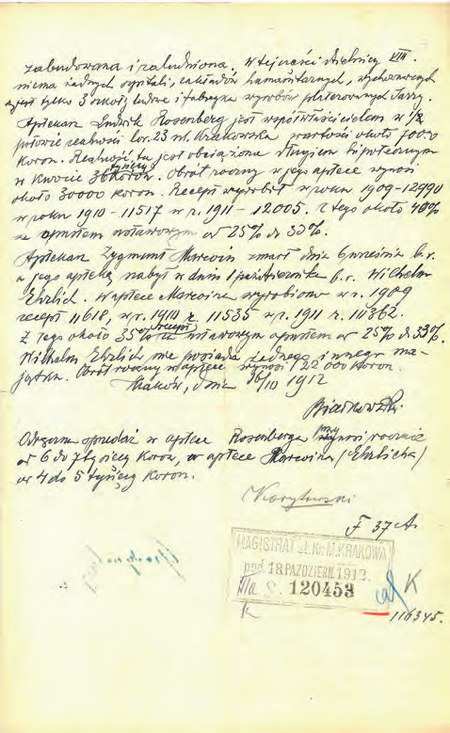 zabudowana i zaludniona. W tej części dzielnicy VIII.
niema żadnych szpitali, zakładów humanitarnych, wychowawczych
tylko 3 szkoły ludowe i fabryka wyrobów
Aptekarz Ludwik Rosenberg jest współwłaścicielem w 1/2
połowie realności lor. 23 ul. Krakowska wartości około 7000
koron. Realność ta jest obciążona długiem hipotecznym
w kwocie 36 tysięcy koron. Obrót roczny w jego aptece wynosi
około 30000 koron. Recept wyrobił w roku 1909-12990
w roku 1910-11517 w r. 1911-12005. z tego około 40%
za opustem ustawowym od 25% do 33%.
Aptekarz Zygmunt Marcoin zmarł dnia 6 września b.r.
a jego aptekę nabył w dniu 1 października b.r. Wilhelm
Ehrlich. W aptece Marcoina wyrobiono w r. 1909
recept 11618, w r. 1910 r. 11535 w r. 1911 r. 11362.
Z tego około 35% recept za ustawowym opustem od 25% do 33%.
Wilhelm Ehrlich nie posiada żadnego innego ma-
jątku. Obrót roczny w aptece wynosi 22000 koron.
Kraków, dnia 16/10 1912
Białkowski.
Odręczna sprzedaż w aptece Rosenberga wynosi rocznie
od 6 do 7 tysięcy koron, w aptece Marcoina (Ehrlicha)
od 4 do 5 tysięcy koron.
F 37 A.
MAGISTRAT ST. KR. M. KRAKOWA
pod 18. PAŹDZIERN. 1912.
IIIa S. 120453
K
K
116345.